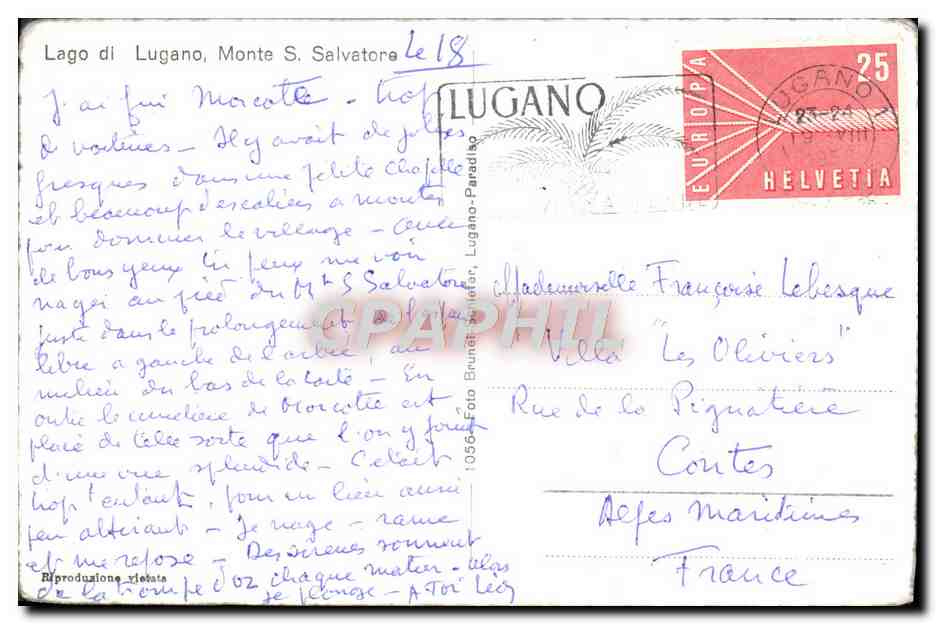 Lago di Lugano, Monte S. Salvatore
Le 18
J'ai fui Morcote - trop
de voitures - Il y avait de jolies
fresques dans une petite chapelle
et beaucoup d'escaliers a monter
pour dominer le village - Avec
de bons yeux tu peux me voir
nager au pied du Mt S Salvatore
juste dans le prolongement de
libre a gauche de l'arbre, au
milieu du bas de la carte - En
outre le cimetière de Morcote est
placé de telle sorte que l'on y jouit
d'une vue splendide - C'etait
trop tentant, pour un lieu aussi
peu attirant - Je nage - rame
et me repose - Des sirenes sonnent
chaque matin - alors
de la trompe d'or je plonge - A Toi Léo
Riproduzione vietata
10564 Foto Brunel Lugano-Paradiso
LUGANO
LUGANO
23-24
VIII
EUROPA
25
HELVETIA
Mademoiselle Françoise Lebesque
Villa "Les Oliviers"
Rue de la Pignatière
Contes
Alpes Maritimes
France
CPAPHIL